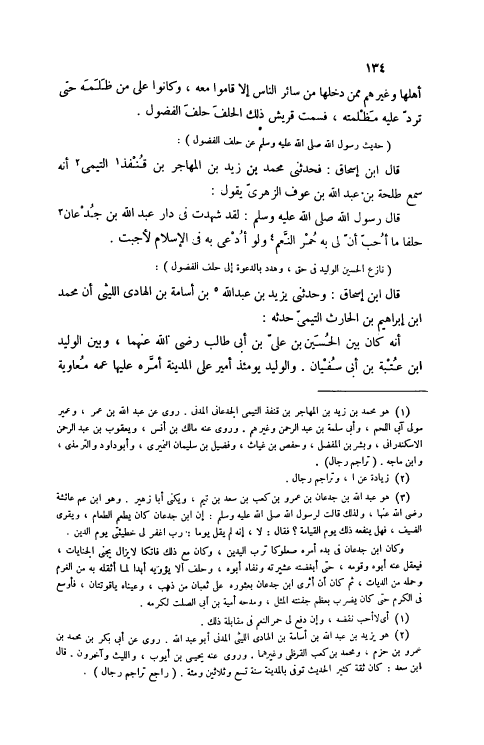 ١٣٤
أهلها وغيرهم ممن دخلها من سائر الناس إلا قاموا معه ، وكانوا على من ظَلَمَه حتى
تردّ عليه مَظْلمته ، فسمت قريش ذلك الحلفَ حلفَ الفضول .
( حديث رسول الله صلى الله عليه وسلم عن حلف الفضول ) :
قال ابن إسحاق : فحدثنى محمد بن زيد بن المهاجر بن قُنْفذ١ التيمى٢ أنه
سمع طلحة بن عبد الله بن عوف الزهرىّ يقول :
قال رسول الله صلى الله عليه وسلم : لقد شهدت فى دار عبد الله بن جُدْعان٣
حلفا ما أُحبّ أنّ لى به حُمْر النَّعم٤ ولو أُدْعى به فى الإسلام لأجبت .
( نازع الحسين الوليد فى حق ، وهدد بالدعوة إلى حلف الفضول ) :
قال ابن إسحاق : وحدثنى يزيد بن عبدالله ٥ بن أسامة بن الهادى الليثى أن محمد
ابن إبراهيم بن الحارث التيمىّ حدثه :
أنه كان بين الحُسَين بن علىّ بن أبى طالب رضى الله عنهما ، وبين الوليد
ابن عُتْبة بن أبى سُفْيان . والوليد يومئذ أمير على المدينة أمَّره عليها عمه مُعاوية
(١) هو محمد بن زيد بن المهاجر بن قنفذ التيمى الجدعانى المدنى . روى عن عبد الله بن عمر ، وعمير
مولى آبى اللحم ، وأبى سلمة بن عبد الرحمن وغيرهم . وروى عنه مالك بن أنس ، ويعقوب بن عبد الرحمن
الاسكندرانى ، وبشر بن المفضل ، وحفص بن غياث ، وفضيل بن سليمان النميرى ، وأبوداود والترمذى ،
وابن ماجه . ( تراجم رجال ) .
(٢) زيادة عن ا ، وتراجم رجال .
(٣) هو عبد الله بن جدعان بن عمرو بن كعب بن سعد بن تيم ، ويكنى أبا زهير . وهو ابن عم عائشة
رضى الله عنها ، ولذلك قالت لرسول الله صلى الله عليه وسلم : إن ابن جدعان كان يطعم الطعام ، ويقرى
الضيف ، فهل ينفعه ذلك يوم القيامة ؟ فقال : لا ، إنه لم يقل يوما : رب اغفر لى خطيئتى يوم الدين .
وكان ابن جدعان فى بدء أمره صعلوكا ترب اليدين ، وكان مع ذلك فاتكا لايزال يجنى الجنايات ،
فيعقل عنه أبوه وقومه ، حتى أبغضته عشيرته ونفاه أبوه ، وحلف ألا يؤويه أبدا لما أثقله به من الغرم
وحمله من الديات ، ثم كان أن أثرى ابن جدعان بعثوره على ثعبان من ذهب ، وعيناه ياقوتتان ، فأوسع
فى الكرم حتى كان يضرب بعظم جفنته المثل ، ومدحه أمية بن أبى الصلت لكرمه .
(١) أى لا أحب نقضه ، وإن دفع لى حمر النعم فى مقابلة ذلك .
(٢) هو يزيد بن عبد الله بن أسامة بن الهادى الليثى المدنى أبو عبد الله . روى عن أبى بكر بن محمد بن
عمرو بن حزم ، ومحمد بن كعب القرظى وغيرهما . وروى عنه يحيى بن أيوب ، والليث وآخرون . قال
ابن سعد : كان ثقة كثير الحديث توفى بالمدينة سنة تسع وثلاثين ومئة . ( راجع تراجم رجال ) .